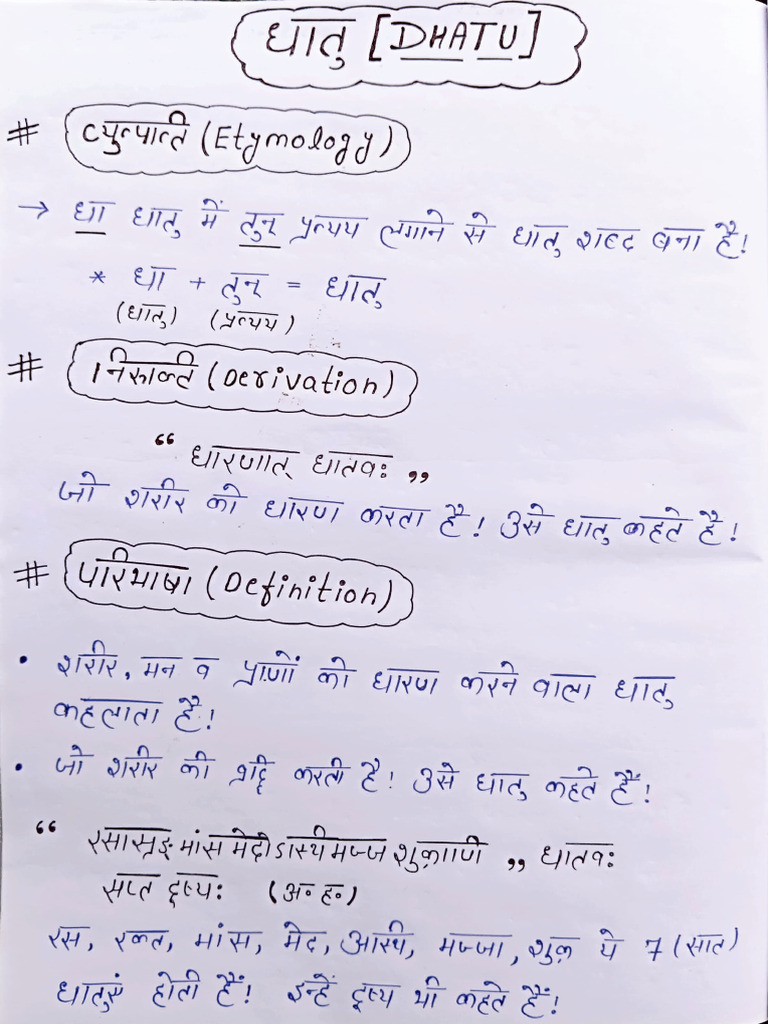 धातु [DHATU]
# व्युत्पत्ति (Etymology)
→ धा धातु में तुन् प्रत्यय लगाने से धातु शब्द बना है!
* धा + तुन् = धातु
(धातु) (प्रत्यय)
# निरूक्ति (Derivation)
“ धारणात् धातवः ”
जो शरीर को धारण करता है! उसे धातु कहते है!
# परिभाषा (Definition)
• शरीर, मन व प्राणों को धारण करने वाला धातु
कहलाता है!
• जो शरीर की करती है! उसे धातु कहते हैं!
“ रसासृङ्मांसमेदोऽस्थिमज्जशुक्राणि ” धातवः
सप्त दूष्यः (अ॰ह॰)
रस, रक्त, मांस, मेद, अस्थि, मज्जा, शुक्र ये 7 (सात)
धातुएं होती हैं! इन्हें दूष्य भी कहते हैं!